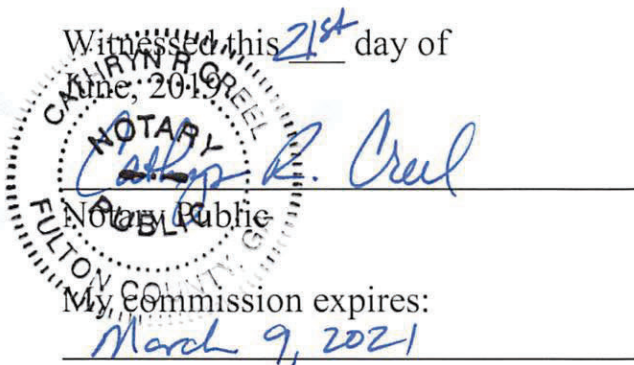 Witnessed this 21st day of
June, 2019
CATHRYN R CREEL
NOTARY
PUBLIC
FULTON COUNTY, GA
Cathryn R. Creel
Notary Public
My commission expires:
March 9, 2021